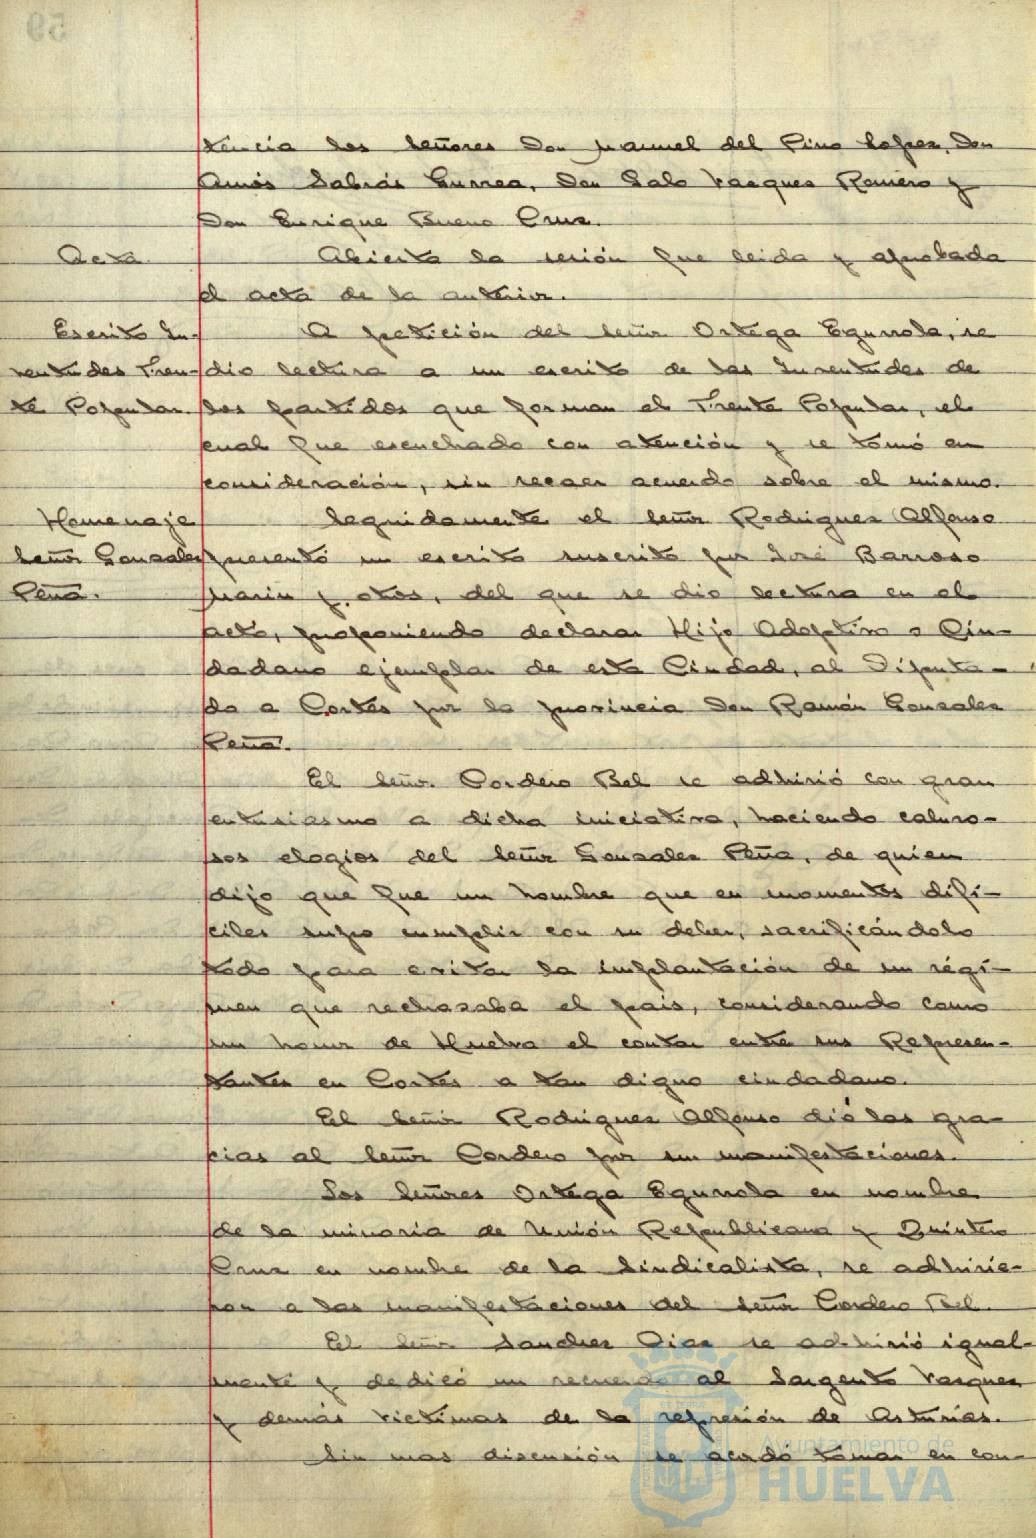 59
tencia los Señores Don Manuel del Pino Lopez, Don
Amós Sabrás Gurrea, Don Galo Vazquez Romero y
Don Enrique Bueno Cruz.
Acta.
Abierta la sesión fue leida y aprobada
el acta de la anterior.
Escrito Ju-
ventudes Fren-
te Popular.
A petición del Señor Ortega Egurrola, se
dio lectura a un escrito de las Juventudes de
los partidos que forman el Frente Popular, el
cual fue escuchado con atención y se tomó en
consideración, sin recaer acuerdo sobre el mismo.
Homenaje
Señor Gonzalez
Peña.
Seguidamente el Señor Rodriguez Alfonso
presentó un escrito suscrito por José Barroso
Marin y otros, del que se dio lectura en el
acto, proponiendo declarar Hijo Adoptivo o Ciu-
dadano ejemplar de esta Ciudad, al Diputa-
do a Cortés por la provincia Don Ramón Gonzalez
Peña.
El Señor Cordero Bel se adhirió con gran
entusiasmo a dicha iniciativa, haciendo caluro-
sos elogios del Señor Gonzalez Peña, de quien
dijo que fue un hombre que en momentos difí-
ciles supo cumplir con su deber, sacrificándolo
todo para evitar la implantación de un régi-
men que rechazaba el pais, considerando como
un honor de Huelva el contar entre sus Represen-
tantes en Cortés a tan digno ciudadano.
El Señor Rodriguez Alfonso dió las gra-
cias al Señor Cordero por sus manifestaciones.
Los Señores Ortega Egurrola en nombre
de la minoria de Unión Republicana y Quintero
Cruz en nombre de la Sindicalista, se adhirie-
ron a las manifestaciones del Señor Cordero Bel.
El Señor Sanchez Diaz se adhirió igual-
mente y dedicó un recuerdo al Sargento Vazquez
y demás victimas de la represión de Asturias.
Sin mas discusión se acordó tomar en con-
Ayuntamiento de
HUELVA